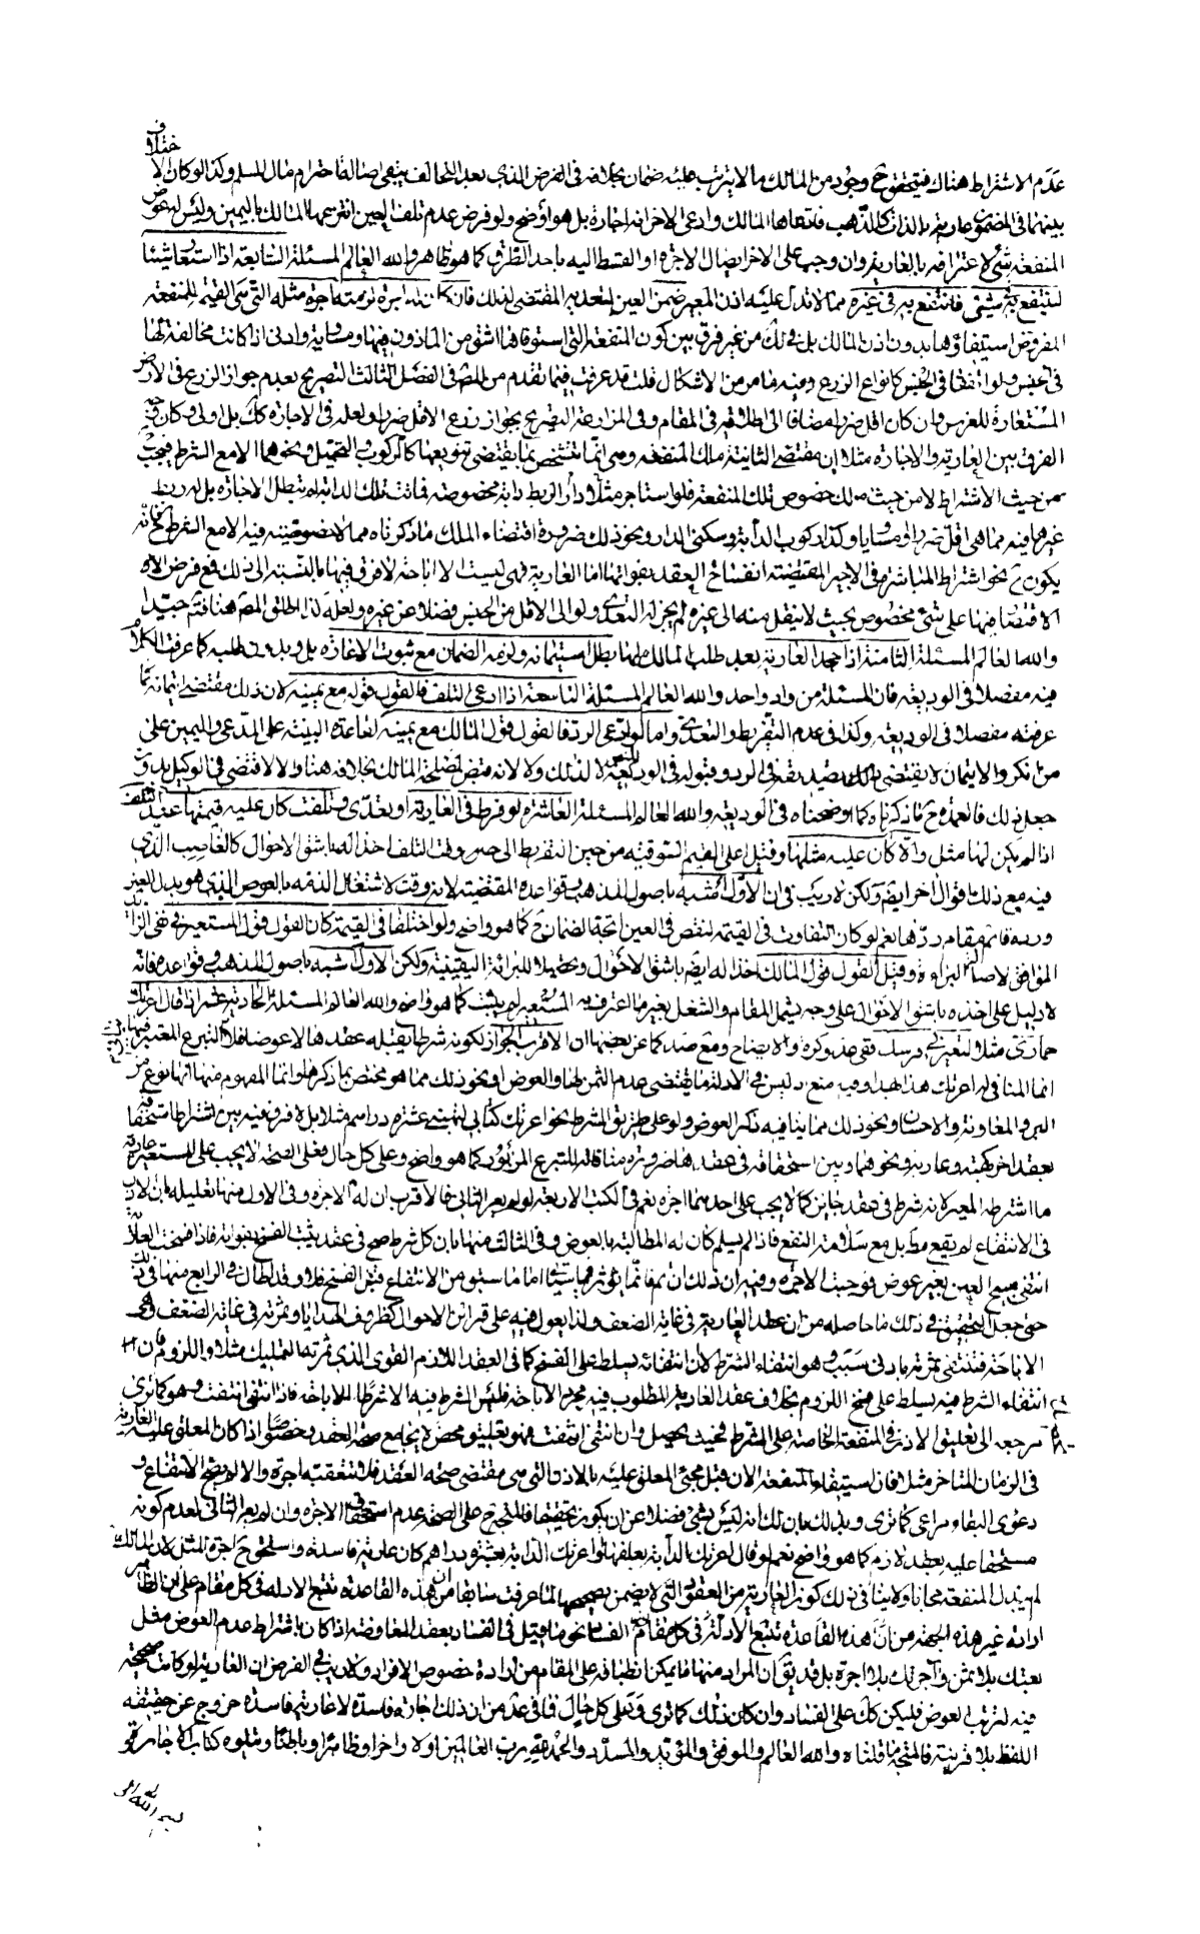 خلاف
عدم الاشتراط هناك فيتحقق ح وجود من المالك ما لا يترتب عليه ضمان بخلافه في الفرض الذي بعد التحالف يبقى اصالة احترام مال المسلم وكذا لو كان الا
بينهما في المضمون عارية بالذات كالذهب فادعاها المالك وادعى الاخر انه اجارة بل هو اوضح ولو فرض عدم تلف العين انتزعها المالك باليمين وليس له عوض
المنفعة شيء لاعترافه بالعارية وان وجب على الاخر ايصال الاجرة او القسط اليه باحد الطرق كما هو ظاهر والله العالم المسئلة السابعة اذا استعار شيئا
لينتفع به في شيء فانتفع به في غيره مما لا تدل عليه اذن المعير ضمن العين لتعديه المقتضي لذلك فان كان له اجرة لزمته اجرة مثله التي هي القيمة للمنفعة
المفروض استيفاؤها بدون اذن المالك بل في لك من غير فرق بين كون المنفعة التي استوفاها اشق من الماذون فيها ومساوية وادنى اذا كانت مخالفة لها
في الجنس ولو اتفقا في الجنس كانواع الزرع ومنه ما مر من الاشكال قلت قد عرفت فيما تقدم من المصنف في الفصل الثالث التصريح بعدم جواز الزرع في الارض
المستعارة للغرس وان كان اقل ضررا مضافا الى اطلاقه في المقام وفي المزارعة التصريح بجواز زرع الاقل ضررا ولعله في الاجارة كك بل اولى وكان وجه
الفرق بين العارية والاجارة مثلا ان مقتضى الثانية ملك المنفعة وهي انما تتشخص بما يقتضي تنويعها كالركوب والتحميل ونحوهما الا مع الشرط فيجب
من حيث الاشتراط لا من حيث ملك خصوص تلك المنفعة فلو استاجر مثلا دارا لربط دابة مخصوصة فماتت تلك الدابة لم تبطل الاجارة بل له ربط
غيرها فيه مما هي اقل ضررا او مساويا وكذا ركوب الدابة وسكنى الدار ونحو ذلك ضرورة اقتضاء الملك ما ذكرناه مما لا خصوصية فيه الا مع الشرط فانه
يكون ح نحو اشتراط المباشرة في الاجير المقتضية انفساخ العقد بفواتها اما العارية فهي ليست الا اباحة لا فرق فيها بالنسبة الى ذلك فمع فرض الاه
الاقتصار فيها على شيء مخصوص بحيث لا ينتقل منه الى غيره لم يجز له التعدي ولو الى الاقل من الجنس فضلا عن غيره ولعله لذا اطلق المصنف هنا فتم جيدا
والله العالم المسئلة الثامنة اذا جحد العارية بعد طلب المالك لها بطل استيمانه ولزمه الضمان مع ثبوت الاعارة بل وبدون طلبه كما عرفت الكلام
فيه مفصلا في الوديعة فان المسئلة من واد واحد والله العالم المسئلة التاسعة اذا ادعى التلف فالقول قوله مع يمينه لان ذلك مقتضى ائتمانه كما
عرفته مفصلا في الوديعة وكذا في عدم التفريط والتعدي واما لو ادعى الرد فالقول قول المالك مع يمينه لقاعدة البينة على المدعي واليمين على
من انكر والايتمان لا يقتضي ذلك تصديقه في الرد وقبوله في الوديعة للنص لا لذلك ولا لانه قبض لمصلحة المالك بخلافه هنا والا لاقتضى في الوكيل بدون
جعل ذلك فالعمدة ح ما ذكرناه كما اوضحناه في الوديعة والله العالم المسئلة العاشرة لو فرط في العارية او تعدى وتلفت كان عليه قيمتها عند التلف
اذا لم يكن لها مثل والا كان عليه مثلها وقيل اعلى القيم لتوقيه من حين التفريط الى حين وقت التلف اخذا له باشق الاحوال كالغاصب الذي
فيه مع ذلك اقوال اخر ايضا ولكن لا ريب في ان الاول اشبه باصول المذهب وقواعده المقتضية لانه وقت لاشتغال الذمة بالعوض الذي هو بدل العين
وبه قائم مقام ردها نعم لو كان التفاوت في القيمة لنقص في العين اتجه الضمان ح كما هو واضح ولو اختلفا في القيمة كان القول قول المستعير في نفي الزائد
الموافق لاصالة البراءة وقيل القول قول المالك اخذا له ايضا باشق الاحوال وتحصيلا للبرائة اليقينية ولكن الاول اشبه باصول المذهب وقواعده فانه
لا دليل على اخذه باشق الاحوال على وجه يشمل المقام والشغل بغير ما اعترف به المستعير لم يثبت كما هو واضح والله العالم المسئلة الحادية عشر اذا قال اعرتك
حماري مثلا لتعيرني فرسك ففي التذكرة والايضاح ومع صد كما عن بعضها ان الاقرب الجواز لكونه شرطا يقبله عقدها لا عوضا فلا التبرع المعتبر فيها
انما المنافي له اعرتك هذا بهذا وفيه منع دليس في الادلة ما يقتضي عدم الثمن لها والعوض او نحو ذلك مما هو مختص بما ذكره وانما المفهوم منها انها نوع من
البر والمعاونة والاحسان ونحو ذلك مما ينافيه ذكر العوض ولو على طريق الشرط نحو اعرتك كتابي لتهبني عشرة دراهم مثلا بل لا فرق فيه بين اشتراط استحقاقه
بعقد اخر كهبة وعارية ونحوهما وبين استحقاقه في عقدها ضرورة منافاته للتبرع المزبور كما هو واضح وعلى كل حال فعلى الصحة لا يجب على المستعير عارية
ما اشترطه المعير لانه شرط في عقد جائز كما لا يجب على احدهما اجرة نعم في الكتب الاربعة لو لم يعر الثاني فالاقرب ان له الاجرة وفي الاول منها تعليله بان لاذن
في الانتفاع لم يقع مط بل مع سلامة النفع فاذا لم يسلم كان له المطالبة بالعوض وفي الثالث منها بان كل شرط صح في عقد يثبت الفسخ بفواته فاذا فسخت العارية
انتفى مبيح العين بغير عوض فوجبت الاجرة وفيه ان ذلك ان تم فانما يؤثر فيما سياتي اما ما ستو من الانتفاع قبل الفسخ فلا وقد اطال في الرابع منها في ذلك
حتى جعل التحقيق في ذلك ما حاصله من ان عقد العارية في غاية الضعف ولذا يعول فيه على قرائن الاحوال كظروف الهدايا وثمرته في غاية الضعف وهي
الاباحة فتنتفي ثمرته بادنى سبب وهو انتفاء الشرط لان انتفائه يسلط على الفسخ كما في العقد اللازم القوي الذي ثمرته التمليك مثلا واللزوم فان
انتفاء الشرط فيه يسلط على فسخ اللزوم بخلاف عقد العارية المطلوب فيه مجرد الاباحة فليس الشرط فيه الا شرطا للاباحة فاذا انتفى انتفت وهو كما ترى
مرجعه الى تعليق الاذن في المنفعة الخاصة على الشرط فحيث يحصل وان انتفى انتفت فهو تعليق محض لا يجامع صحة العقد وخصوصا اذا كان المعلق عليه العارية
في الزمان المتاخر مثلا فان استيفاء المنفعة الان قبل مجيء المعلق عليه بالاذن التي هي مقتضى صحة العقد فلا تتعقبه اجرة والا لم يصح الانتفاع و
دعوى البقاء مراعى كما ترى وبذلك بان لك انه ليس بشيء فضلا عن ان يكون تحقيقا فالمتجه ح على الصحة عدم استحقاق الاجرة وان لم يعر الثاني لعدم كونه
مستحقا عليه بعقد لازم كما هو واضح نعم لو قال اعرتك الدابة بعلفها او اعرتك الدابة بعشرة دراهم كان عارية فاسدة واستحق ح اجرة المثل لان المالك
لم يبذل المنفعة مجانا ولا ينافي ذلك كون العارية من العقود التي لا يضمن بصحيحها لما عرفت سابقا من ان هذه القاعدة تتبع الادلة في كل مقام على ان الظاهر
ارادة غير هذه الجهة من ان هذه القاعدة تتبع الادلة في كل مقام الفساد نحو ما قيل في الفساد بعقد المعاوضة اذا كان باشتراط عدم العوض مثل
بعتك بلا ثمن وآجرتك بلا اجرة بل قد يق ان المراد منها ما يمكن انطباقه على المقام من ارادة خصوص الافراد ولا ريب في الفرض ان العارية لو كانت صحيحة
فيه لترتب العوض فليكن كك على الفساد وان كان ذلك كما ترى وعلى كل حال فما في عدم من ان ذلك اجارة فاسدة لا عارية فاسدة خروج عن حقيقة
اللفظ بلا قرينة فالمتجه ما قلناه والله العالم والموفق والمؤيد والمسدد والحمد لله رب العالمين اولا واخرا وظاهرا وباطنا ويتلوه كتاب الاجارة
بسم الله